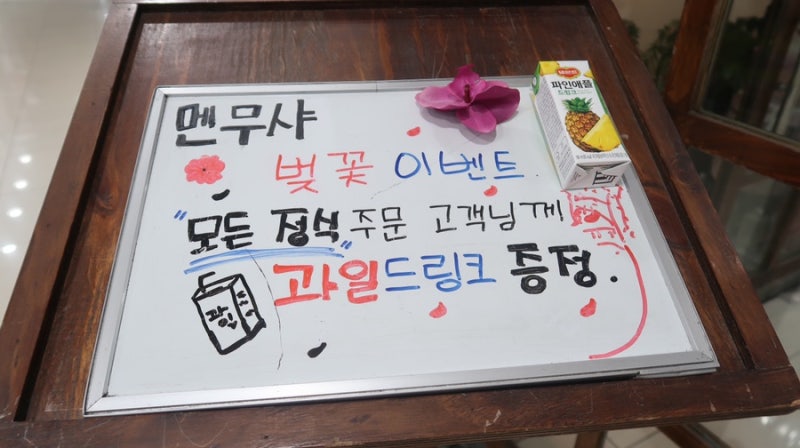 멘무샤
벚꽃 이벤트.
"모든 정식" 주문 고객님께
과일드링크 증정.
과일
파인애플
드링크